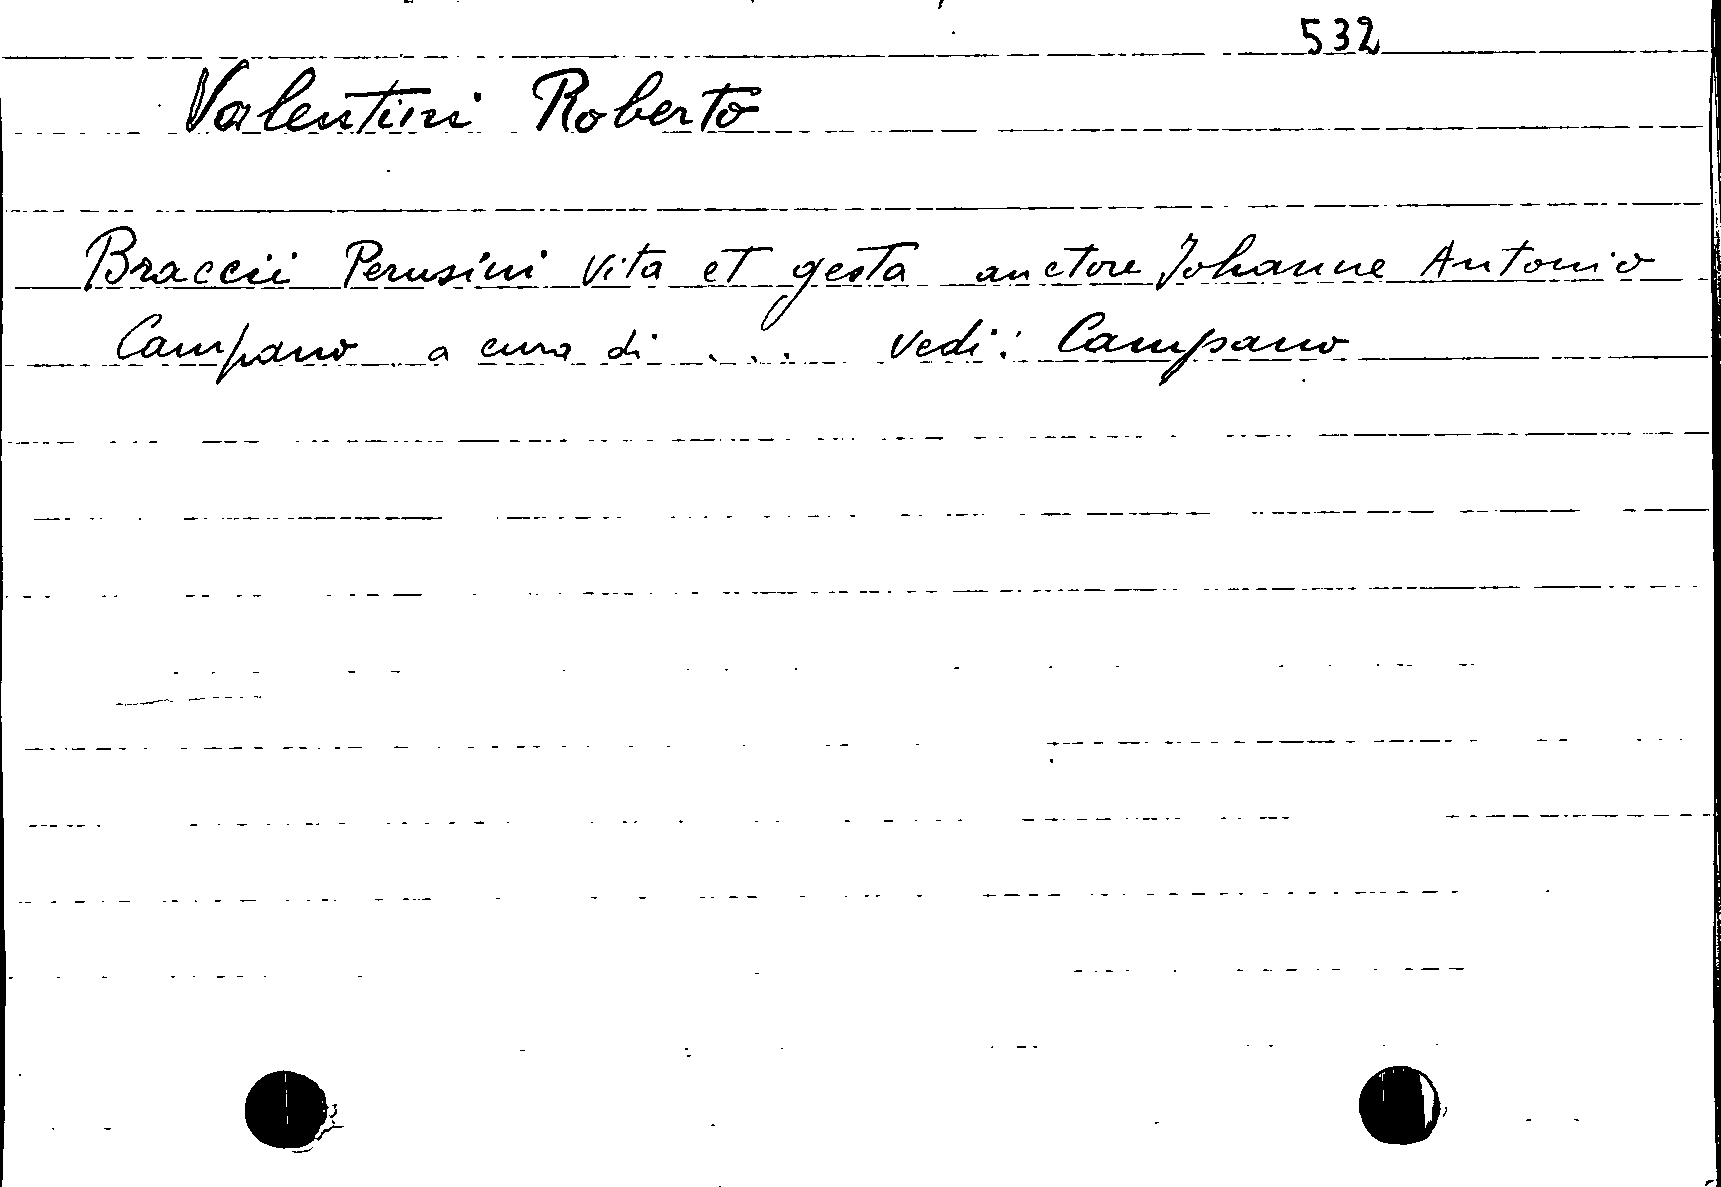 532
Valentini Roberto
Braccii Perusini vita et gesta auctore Johanne Antonio
Campano a cura di . . . vedi: Campano